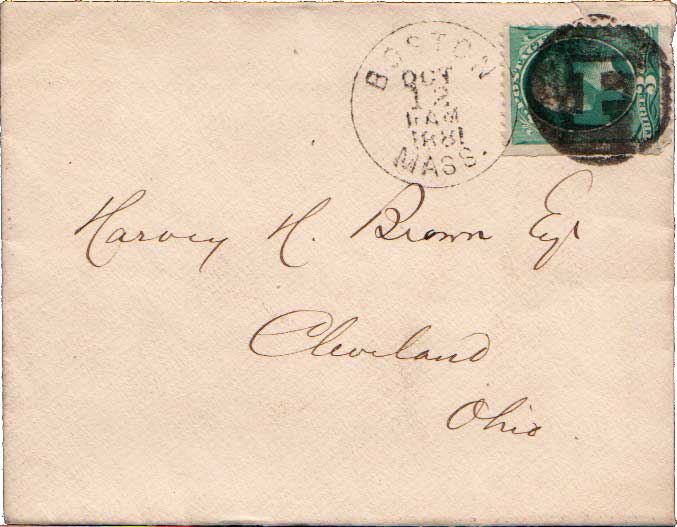 BOSTON
OCT
12
11 AM
1881
MASS.
E
Harvey H. Brown Esq
Cleveland
Ohio